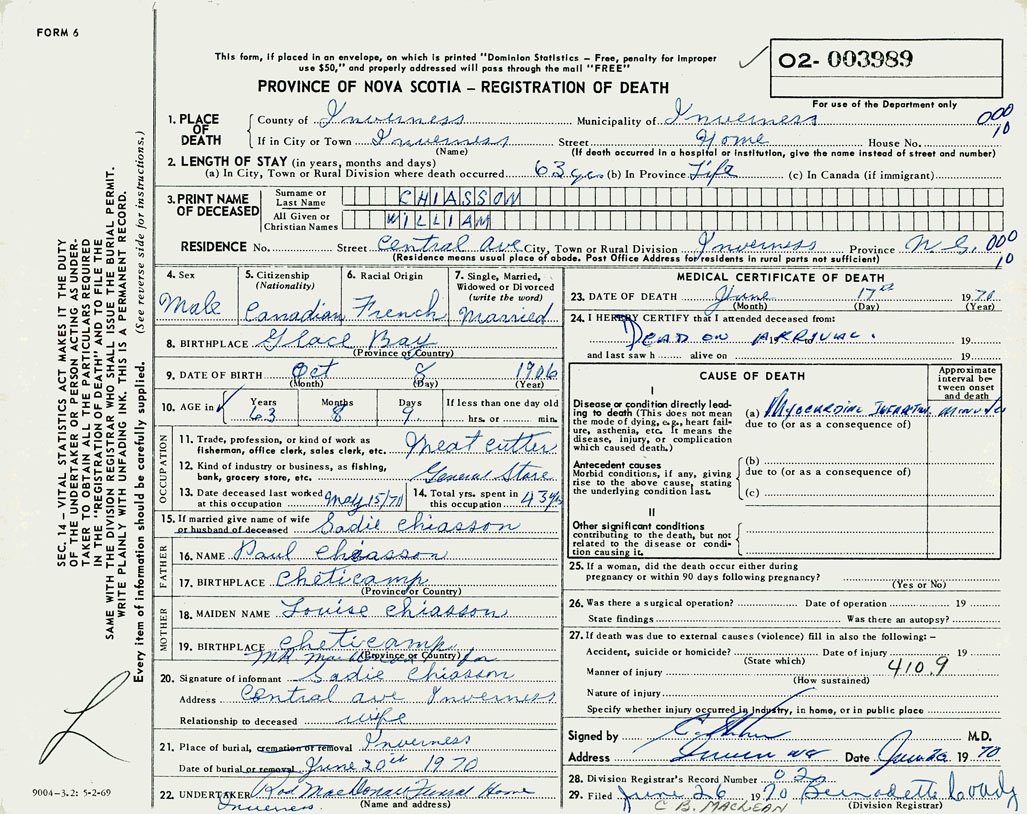 FORM 6
This form, if placed in an envelope, on which is printed "Dominion Statistics – Free, penalty for improper
use $50," and properly addressed will pass through the mail "FREE"
02- 003989
For use of the Department only
PROVINCE OF NOVA SCOTIA – REGISTRATION OF DEATH
SEC. 14 – VITAL STATISTICS ACT MAKES IT THE DUTY
OF THE UNDERTAKER OR PERSON ACTING AS UNDER-
TAKER TO OBTAIN ALL THE PARTICULARS REQUIRED
IN THE "REGISTRATION OF DEATH" AND FILE THE
SAME WITH THE DIVISION REGISTRAR WHO SHALL ISSUE THE BURIAL PERMIT.
WRITE PLAINLY WITH UNFADING INK. THIS IS A PERMANENT RECORD.
Every item of information should be carefully supplied. (See reverse side for instructions.)
1. PLACE OF DEATH
County of Inverness Municipality of Inverness 000
10
If in City or Town Inverness Street Home House No.
(Name) (If death occurred in a hospital or institution, give the name instead of street and number)
2. LENGTH OF STAY (in years, months and days)
(a) In City, Town or Rural Division where death occurred 63 yrs (b) In Province Life (c) In Canada (if immigrant)
3. PRINT NAME OF DECEASED
Surname or Last Name CHIASSON
All Given or Christian Names WILLIAM
RESIDENCE No. Street Central Ave City, Town or Rural Division Inverness Province N.S. 000
10
(Residence means usual place of abode. Post Office Address for residents in rural parts not sufficient)
4. Sex Male
5. Citizenship (Nationality) Canadian
6. Racial Origin French
7. Single, Married, Widowed or Divorced (write the word) Married
8. BIRTHPLACE Glace Bay
(Province or Country)
9. DATE OF BIRTH Oct 8 1906
(Month) (Day) (Year)
10. AGE in Years Months Days If less than one day old
63 8 9 hrs. or min.
OCCUPATION
11. Trade, profession, or kind of work as fisherman, office clerk, sales clerk, etc. Meat cutter
12. Kind of industry or business, as fishing, bank, grocery store, etc. General Store
13. Date deceased last worked at this occupation May 15/70
14. Total yrs. spent in this occupation 43 yrs
15. If married give name of wife or husband of deceased Sadie Chiasson
FATHER
16. NAME Paul Chiasson
17. BIRTHPLACE Cheticamp
(Province or Country)
MOTHER
18. MAIDEN NAME Louise Chiasson
19. BIRTHPLACE Cheticamp
(Province or Country)
for
20. Signature of informant Sadie Chiasson
Address Central ave Inverness
Relationship to deceased wife
21. Place of burial, cremation or removal Inverness
Date of burial or removal June 20th 1970
22. UNDERTAKER Rod MacDonald Funeral Home
Inverness.
(Name and address)
9004-3.2: 5-2-69
MEDICAL CERTIFICATE OF DEATH
23. DATE OF DEATH June 17th 1970
(Month) (Day) (Year)
24. I HEREBY CERTIFY that I attended deceased from:
DEAD ON ARRIVAL. 19
and last saw h alive on 19
CAUSE OF DEATH
Approximate interval between onset and death
I
Disease or condition directly leading to death (This does not mean the mode of dying, e.g., heart failure, asthenia, etc. It means the disease, injury, or complication which caused death.)
(a) Myocardial Infarction minutes
due to (or as a consequence of)
Antecedent causes
Morbid conditions, if any, giving rise to the above cause, stating the underlying condition last.
(b)
due to (or as a consequence of)
(c)
II
Other significant conditions contributing to the death, but not related to the disease or condition causing it.
25. If a woman, did the death occur either during
pregnancy or within 90 days following pregnancy?
(Yes or No)
26. Was there a surgical operation? Date of operation 19
State findings Was there an autopsy?
27. If death was due to external causes (violence) fill in also the following: –
Accident, suicide or homicide? Date of injury 19
(State which)
Manner of injury 410.9
(How sustained)
Nature of injury
Specify whether injury occurred in Industry, in home, or in public place
Signed by M.D.
Address Date June 26 1970
28. Division Registrar's Record Number 02
29. Filed June 26 1970 Bernadette Coady
C B. MACLEAN (Division Registrar)